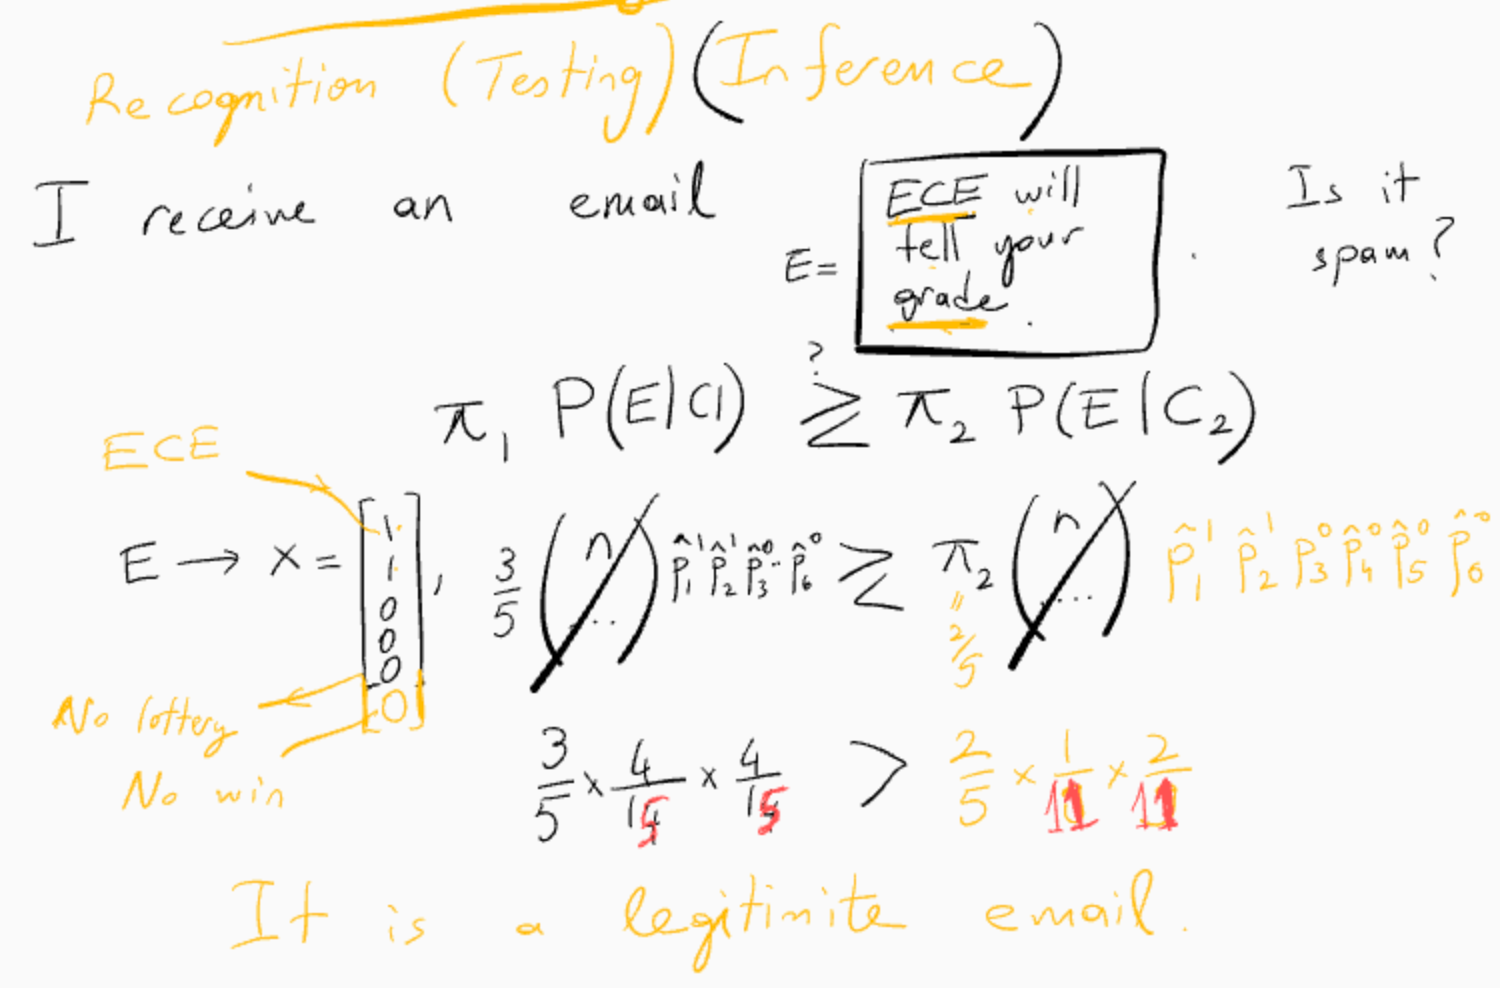 Recognition (Testing) (Inference)
I receive an email E = ECE will tell your grade . . Is it spam?
π₁ P(E|C1) ≷? π₂ P(E|C₂)
ECE
E → x = [1 1 0 0 0 0], 3/5 (n ...) p̂₁¹ p̂₂¹ p̂₃⁰ ·· p̂₆⁰ ≷ π₂ (n ...) p̂₁¹ p̂₂¹ p̂₃⁰ p̂₄⁰ p̂₅⁰ p̂₆⁰
= 2/5
No lottery
No win
3/5 × 4/15 × 4/15 > 2/5 × 1/11 × 2/11
It is a legitinite email.